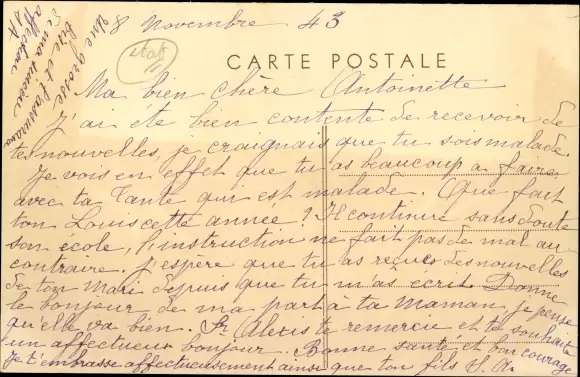 8 Novembre 43
CARTE POSTALE
Ma bien chère Antoinette
J'ai été bien contente de recevoir de
tes nouvelles, je craignais que tu sois malade.
Je vois en effet que tu as beaucoup a faire
avec ta Tante qui est malade. Que fait
ton Louis cette année? Il continue sans doute
son école, l'instruction ne fait pas de mal au
contraire. J'espère que tu as reçues des nouvelles
de ton Mari depuis que tu m'as écrit. Donne
le bonjour de ma part à ta Maman, je pense
qu'elle va bien. Sr Alexis te remercie et te souhaite
un affectueux bonjour. Bonne santé et bon courage
Je t'embrasse affectueusement ainsi que ton fils S. A.
Une grosse
bise et l'assurance
de ma sincère
affection